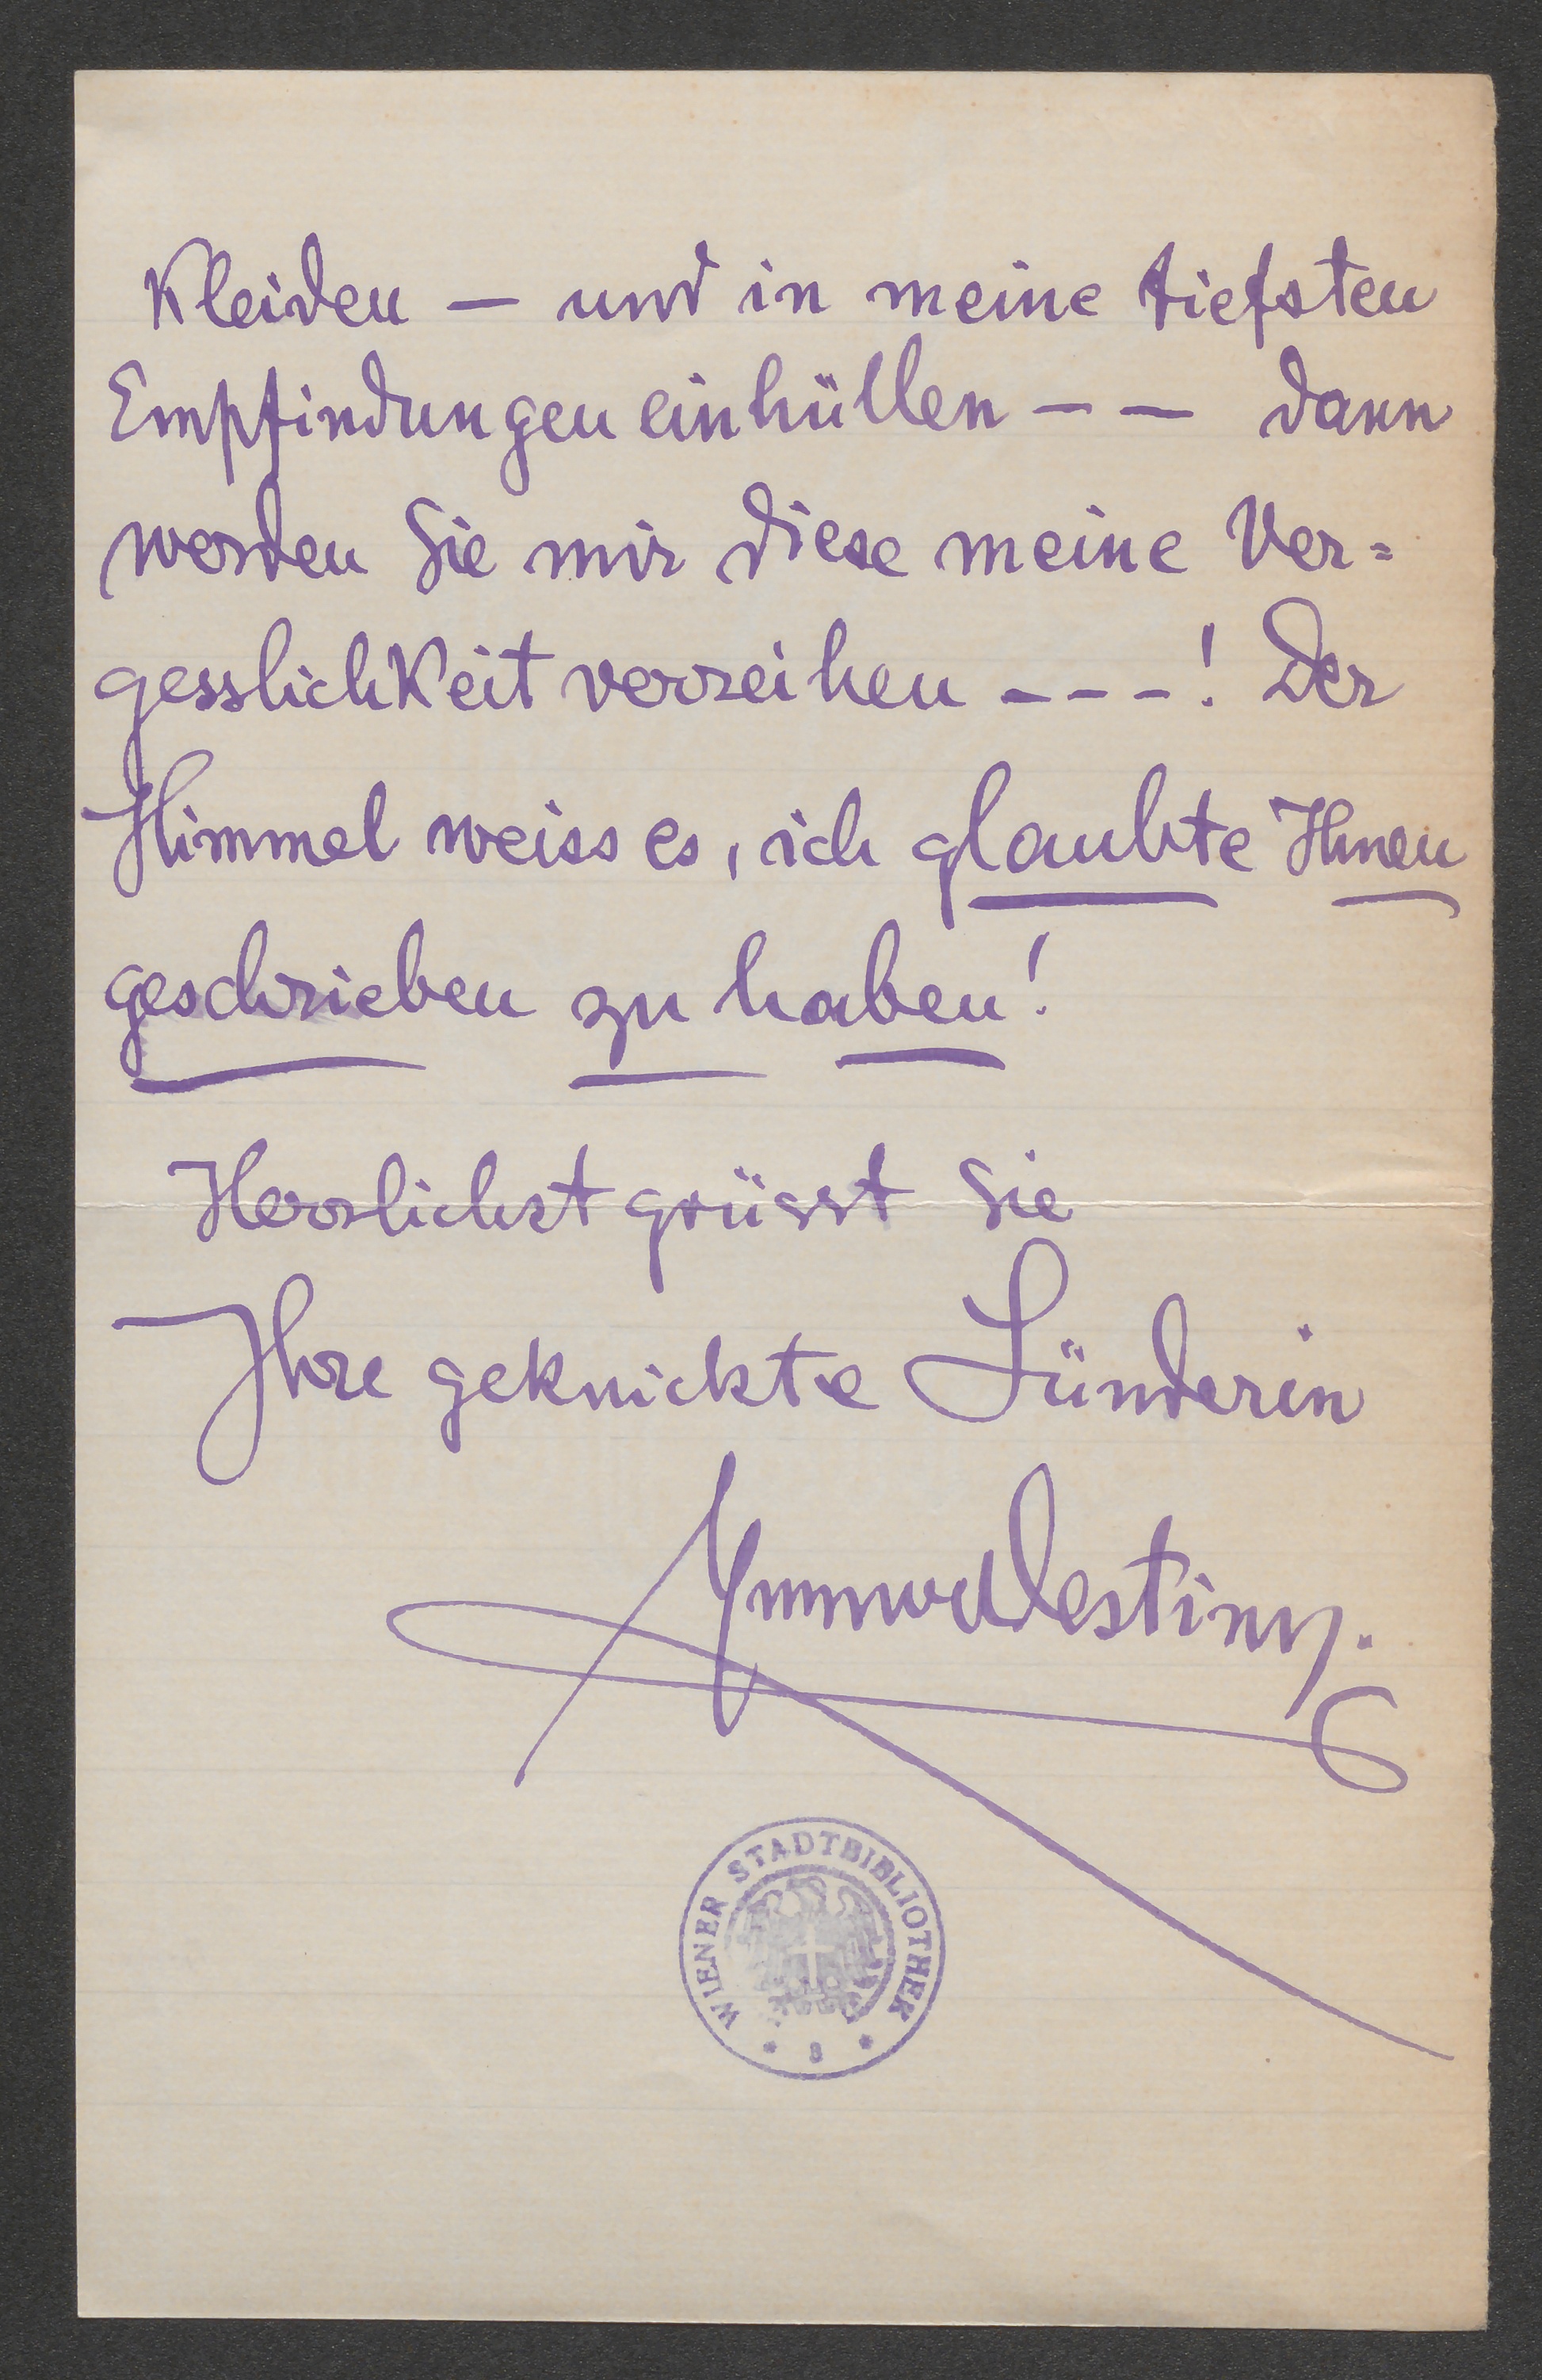 Kleiden — und in meine tiefsten
Empfindungen einhüllen — — dann
werden Sie mir diese meine Ver=
gesslichkeit verzeihen - - - ! Der
Himmel weiss es, ich glaubte Ihnen
geschrieben zu haben!
Herzlichst grüsst Sie
Ihre geknickte Sünderin
EmmyDestinn.
WIENER STADTBIBLIOTHEK